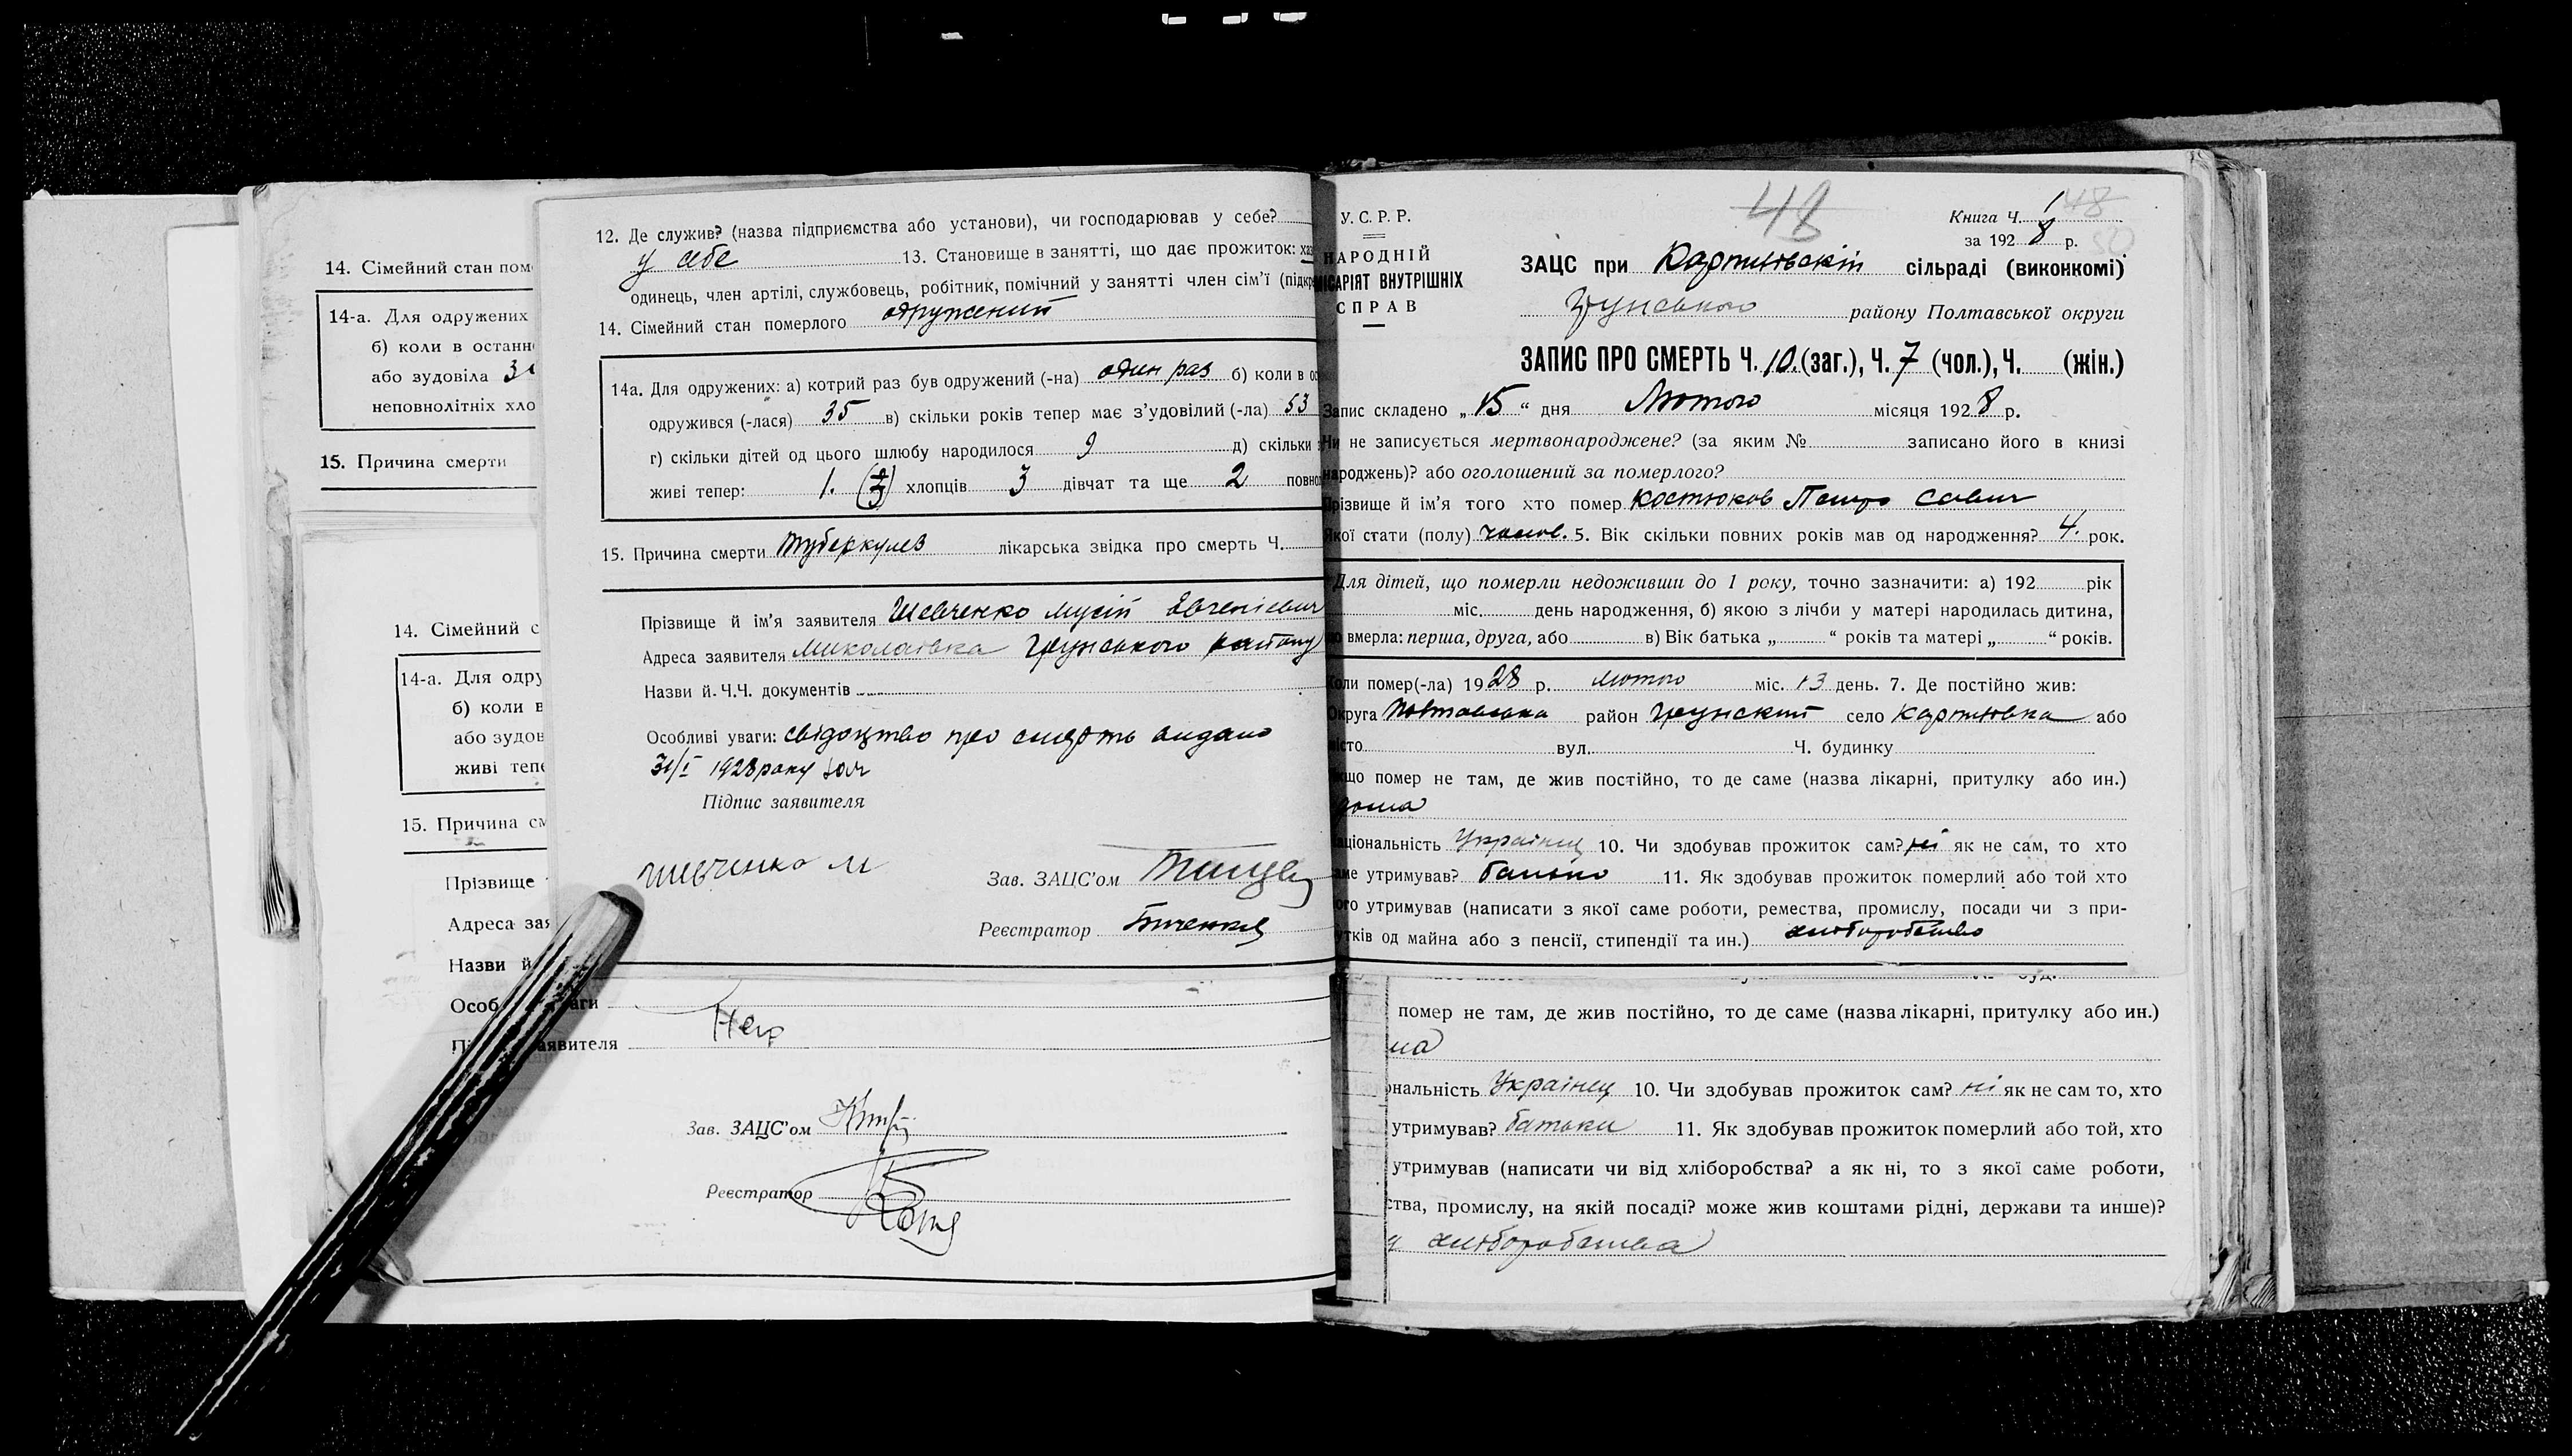 14. Сімейний стан пом
14-а. Для одружених
б) коли в останн
або зудовіла
неповнолітніх хло
15. Причина смерти
14. Сімейний с
14-а. Для одру
б) коли в
або зудов
живі тепе
15. Причина см
Прізвище
Адреса зая
Назви й
12. Де служив? (назва підприємства або установи), чи господарював у себе?
у себе 13. Становище в занятті, що дає прожиток: хаз
одинець, член артілі, службовець, робітник, помічний у занятті член сім'ї (підкре
14. Сімейний стан померлого одружений
14а. Для одружених: а) котрий раз був одружений (-на) один раз б) коли в ос
одружився (-лася) 35 в) скільки років тепер має з'удовілий (-ла) 53
г) скільки дітей од цього шлюбу народилося 9 д) скільки з
живі тепер: 1. хлопців 3 дівчат та ще 2 повно
15. Причина смерти Туберкулез лікарська звідка про смерть Ч.
Прізвище й ім'я заявителя Шевченко Мусій Евгенієвич
Адреса заявителя Миколаївка Грунського району
Назви й Ч.Ч. документів
Особливі уваги: свідоцтво про смерть видано
31/I 1928 року
Підпис заявителя
Шевченко М
Зав. ЗАЦС'ом
Реєстратор
Особ аги
Пі аявителя
Зав. ЗАЦС'ом
Реєстратор
У.С.Р.Р.
НАРОДНІЙ
МІСАРІЯТ ВНУТРІШНІХ
СПРАВ
48
48
50
Книга Ч. 1
за 1928 р.
ЗАЦС при сільраді (виконкомі)
Грунського району Полтавської округи
ЗАПИС ПРО СМЕРТЬ Ч. 10. (заг.), Ч. 7 (чол.), Ч. (жін.)
Запис складено „15“ дня Лютого місяця 1928 р.
Чи не записується мертвонароджене? (за яким № записано його в книзі
народжень)? або оголошений за померлого?
Прізвище й ім'я того хто помер Костюков Петро Савич
Якої стати (полу) чолов. 5. Вік скільки повних років мав од народження? 4. рок.
Для дітей, що померли недоживши до 1 року, точно зазначити: а) 192 рік
міс. день народження, б) якою з лічби у матері народилась дитина,
що вмерла: перша, друга, або в) Вік батька „ “ років та матері „ “ років.
Коли помер(-ла) 1928 р. лютого міс. 13 день. 7. Де постійно жив:
Округа Полтавська район Грунский село або
місто вул. Ч. будинку
Якщо помер не там, де жив постійно, то де саме (назва лікарні, притулку або ин.)
дома
аціональність Українець 10. Чи здобував прожиток сам? ні як не сам, то хто
саме утримував? батько 11. Як здобував прожиток померлий або той хто
його утримував (написати з якої саме роботи, ремества, промислу, посади чи з при-
утків од майна або з пенсії, стипендії та ин.) хліборобство
помер не там, де жив постійно, то де саме (назва лікарні, притулку або ин.)
ма
ональність Українець 10. Чи здобував прожиток сам? ні як не сам то, хто
утримував? батьки 11. Як здобував прожиток померлий або той, хто
утримував (написати чи від хліборобства? а як ні, то з якої саме роботи,
ства, промислу, на якій посаді? може жив коштами рідні, держави та инше)?
хліборобства